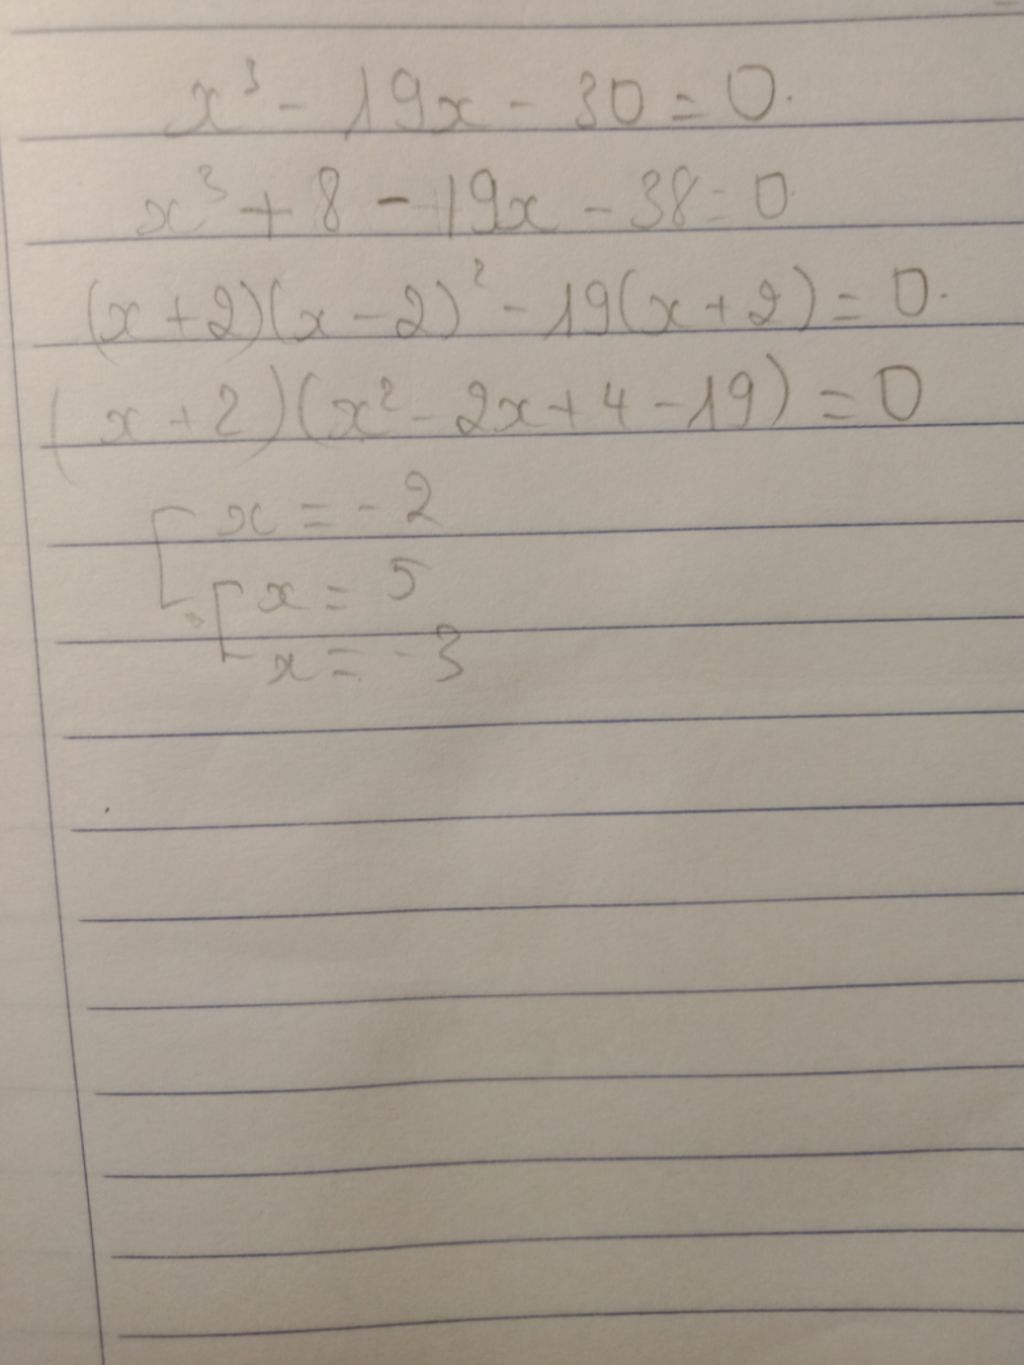 x³ - 19x - 30 = 0.
x³ + 8 - 19x - 38 = 0
(x + 2)(x - 2)² - 19(x + 2) = 0.
(x + 2)(x² - 2x + 4 - 19) = 0
[ x = - 2
[ x = 5
x = - 3